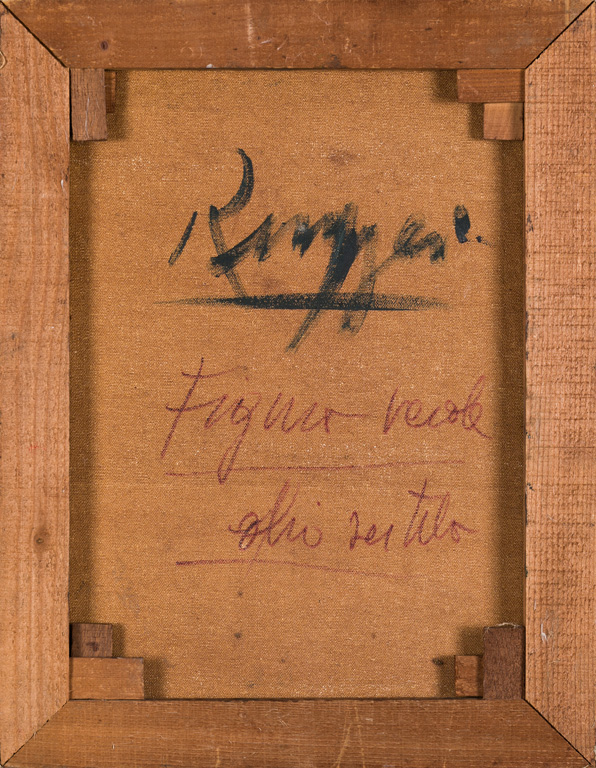 Ruggeri.
Figura verde
olio su tela